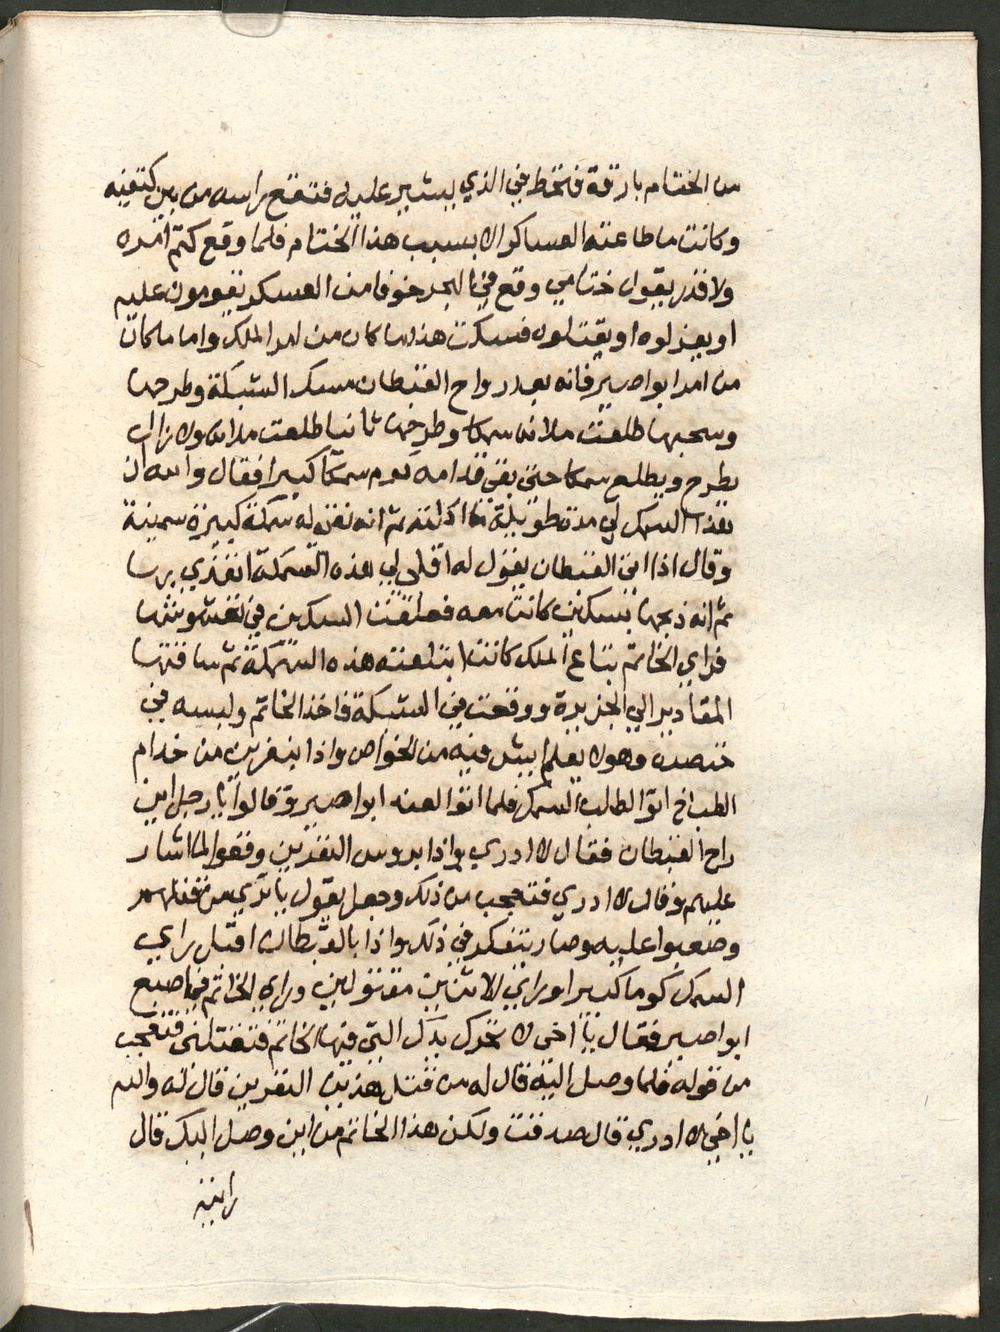 من الختام بارقة فتخط في الذي يشير عليه فتقع راسه من بين كتفيه
وكانت ما طاعته العساكر الا بسبب هذا الختام فلما وقع كتم امره
ولا قدر يقول ختامي وقع في البحر خوفا من العسكر يقومون عليه
او يعزلوه او يقتلوه فسكت هذا ما كان من امر الملك واما ما كان
من امر ابو اصير فانه بعد رواح القبطان مسك الشبكة وطرحها
وسحبها طلعت ملانه سمكا وطرحها ثانيا طلعت ملانه ولا زال
يطرح ويطلع سمكا حتى بقي قدامه كوم سمكا كبيرا فقال والله ان
هذا السمك لي مدة طويلة ما اكلته ثم انه نقى له سمكة كبيرة سمينة
وقال اذا اتى القبطان يقول له اقلي لي هذه السمكة اتغدي بها
ثم انه ذبحها بسكين كانت معه فعلقت السكين في نغشوشها
فراي الخاتم بتاع الملك كانت ابتلعته هذه السمكة ثم ساقتها
المقادير الي الجزيرة ووقعت في الشبكة فاخذ الخاتم ولبسه في
خنصره وهو لا يعلم ايش فيه من الخواص واذا بنفرين من خدام
الطباخ اتوا لطلب السمك فلما اتوا لعند ابوا صير وقالوا يا رجل اين
راح القبطان فقال لا ادري واذا بروس النفرين وقعوا لما اشار
عليهم وقال لا ادري فتعجب من ذلك وجعل يقول يا تري من قتلهم
وصعبوا عليه وصار يتفكر في ذلك واذا بالقبطان اقبل راي
السمك كوما كبيرا وراي الاثنين مقتولين وراي الخاتم في اصبع
ابوا صير فقال يا اخي لا تحرك يدك التي فيها الخاتم فتقتلني فتعجب
من قوله فلما وصل اليه قال له من قتل هذين النفرين قال له والله
يا اخي لا ادري قال صدقت ولكن هذا الخاتم من اين وصل اليك قال
رايته